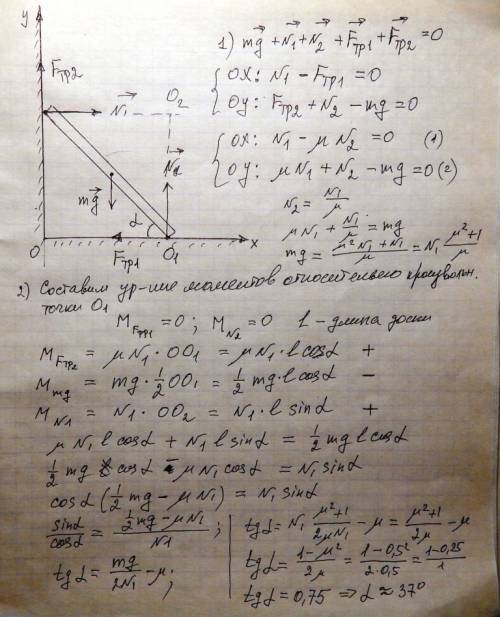 y
1) mg + N1 + N2 + Fтр1 + Fтр2 = 0
Fтр2
N1
O2
OX: N1 - Fтр1 = 0
OY: Fтр2 + N2 - mg = 0
N2
OX: N1 - μN2 = 0 (1)
OY: μN1 + N2 - mg = 0 (2)
mg
α
O
Fтр1
O1
x
N2 = N1/μ
μN1 + N1/μ = mg
mg = (μ²N1 + N1)/μ = N1 (μ²+1)/μ
2) Составим ур-ние моментов относительно произвольн.
точки O1
MFтр1 = 0; MN2 = 0 l - длина доски
MFтр2 = μN1·OO1 = μN1·l cosα +
Mmg = mg·½OO1 = ½mg·l cosα −
MN1 = N1·OO2 = N1·l sinα +
μN1 l cosα + N1 l sinα = ½mg l cosα
½mg cosα - μN1 cosα = N1 sinα
cosα(½mg - μN1) = N1 sinα
sinα/cosα = (½mg - μN1)/N1;
tgα = mg/2N1 - μ;
tgα = N1 (μ²+1)/2μN1 - μ = (μ²+1)/2μ - μ
tgα = (1-μ²)/2μ = (1-0,5²)/2·0,5 = (1-0,25)/1
tgα = 0,75 ⇒ α ≈ 37°